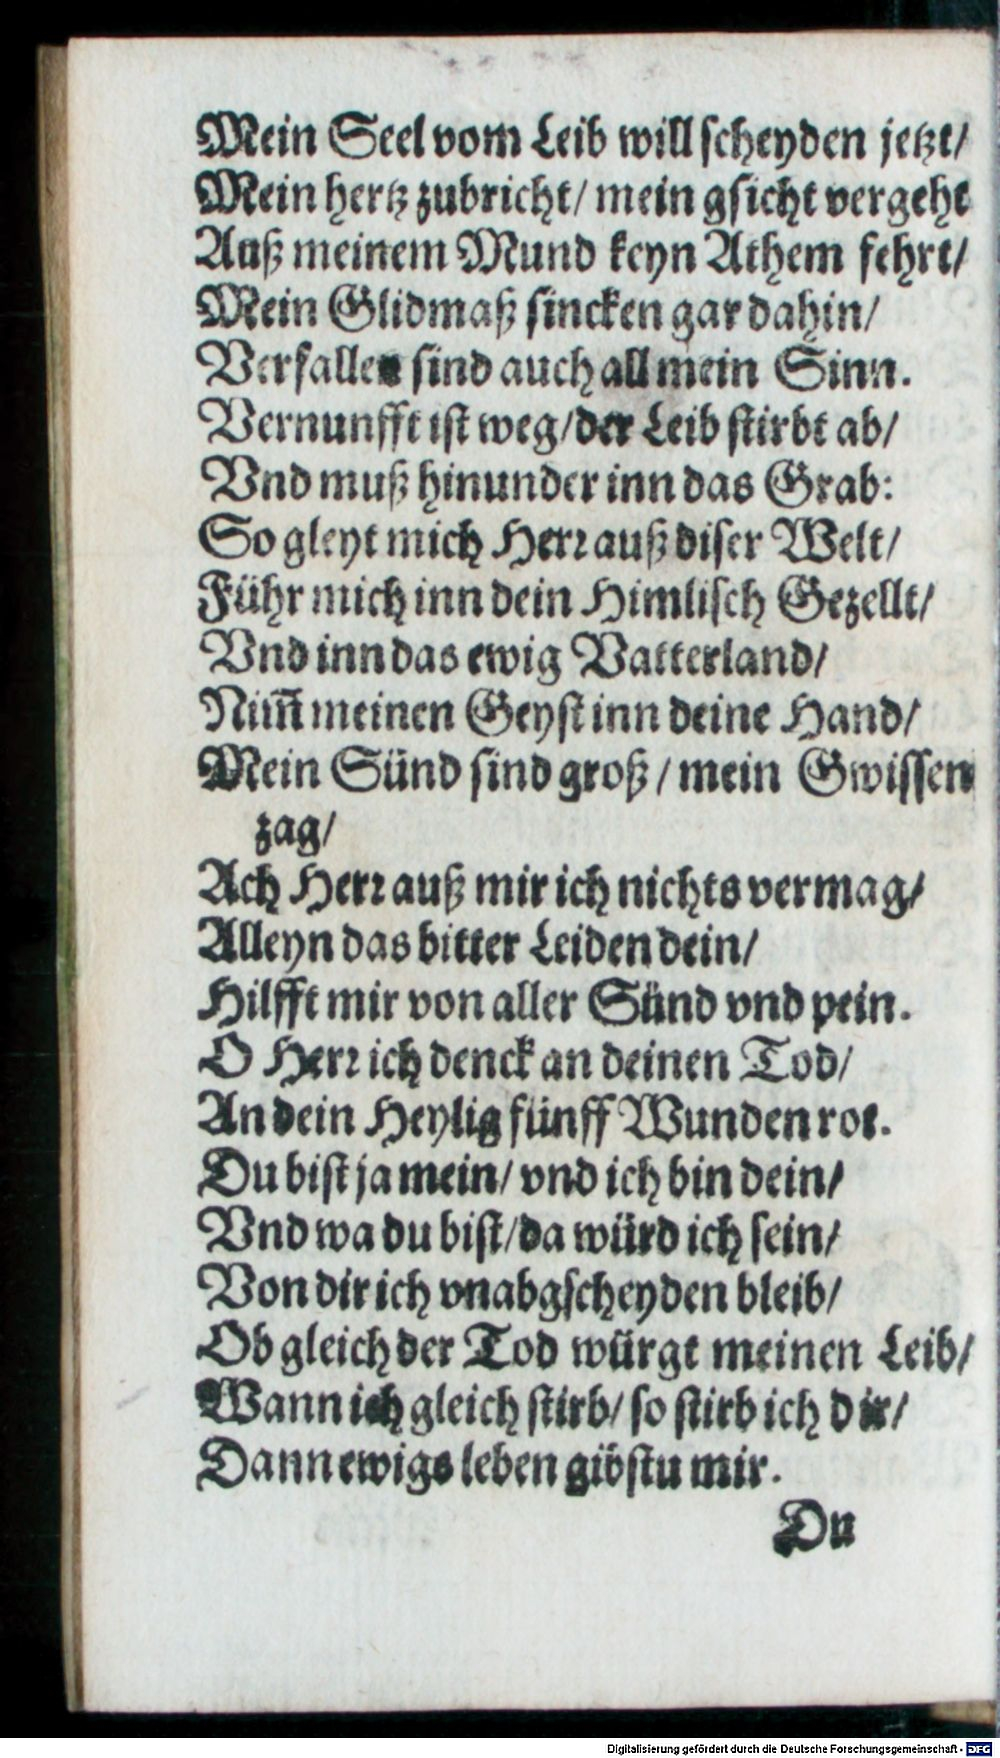 Mein Seel vom Leib will scheyden jetzt/
Mein hertz zubricht/ mein gsicht vergeht
Auß meinem Mund keyn Athem fehrt/
Mein Glidmaß sincken gar dahin/
Verfallen sind auch all mein Sinn.
Vernunfft ist weg/ der Leib stirbt ab/
Vnd muß hinunder inn das Grab:
So gleyt mich Herr auß diser Welt/
Führ mich inn dein Himlisch Gezellt/
Vnd inn das ewig Vatterland/
Nim̃ meinen Geyst inn deine Hand/
Mein Sünd sind groß/ mein Gwissen
zag/
Ach Herr auß mir ich nichts vermag/
Alleyn das bitter Leiden dein/
Hilfft mir von aller Sünd vnd pein.
O Herr ich denck an deinen Tod/
An dein Heylig fünff Wunden rot.
Du bist ja mein/ vnd ich bin dein/
Vnd wa du bist/ da würd ich sein/
Von dir ich vnabgscheyden bleib/
Ob gleich der Tod würgt meinen Leib/
Wann ich gleich stirb/ so stirb ich dir/
Dann ewigs leben gibstu mir.
Du
Digitalisierung gefördert durch die Deutsche Forschungsgemeinschaft - DFG